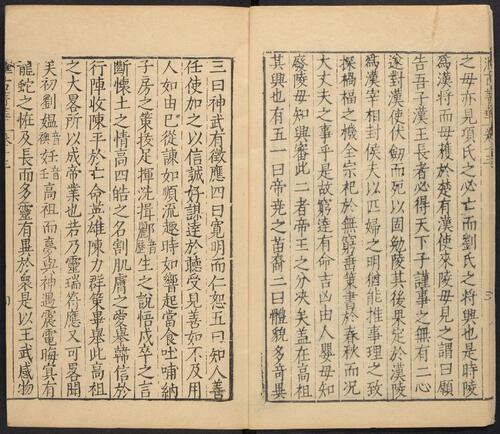 之毋亦見項氏之必亡而劉氏之將興也是時陵
為漢將而毋獲於楚有漢使來陵毋見之謂曰願
告吾子漢王長者必得天下子謹事之無有二心
遂對漢使伏劒而死以固勉陵其後果定於漢陵
為漢宰相封侯夫以匹婦之明猶能推事理之致
探禍福之機全宗祀於無窮垂策書於春秋而况
大丈夫之事乎是故窮達有命吉凶由人嬰毋知
廢陵毋知興審此二者帝王之分夬矣盖在高祖
其興也有五一曰帝堯之苗裔二曰體貌多奇異
三曰神武有徵應四曰寬明而仁恕五曰知人善
任使加之以信誠好謀達於聽受見善如不及用
人如由已從諫如順流趣時如響起當食吐哺納
子房之策拔足揮洗揖酈音生之說悟戍卒之言
斷懷土之情高四皓之名割肌膚之愛舉韓信於
行陣收陳平於亡命英雄陳力群策畢舉此高祖
之大畧所以成帝業也若乃靈瑞符應又可畧聞
矣初劉媪音妊音壬高祖而夢與神遇震電晦冥有
龍蛇之怪及長而多靈有異於衆是以王武感物